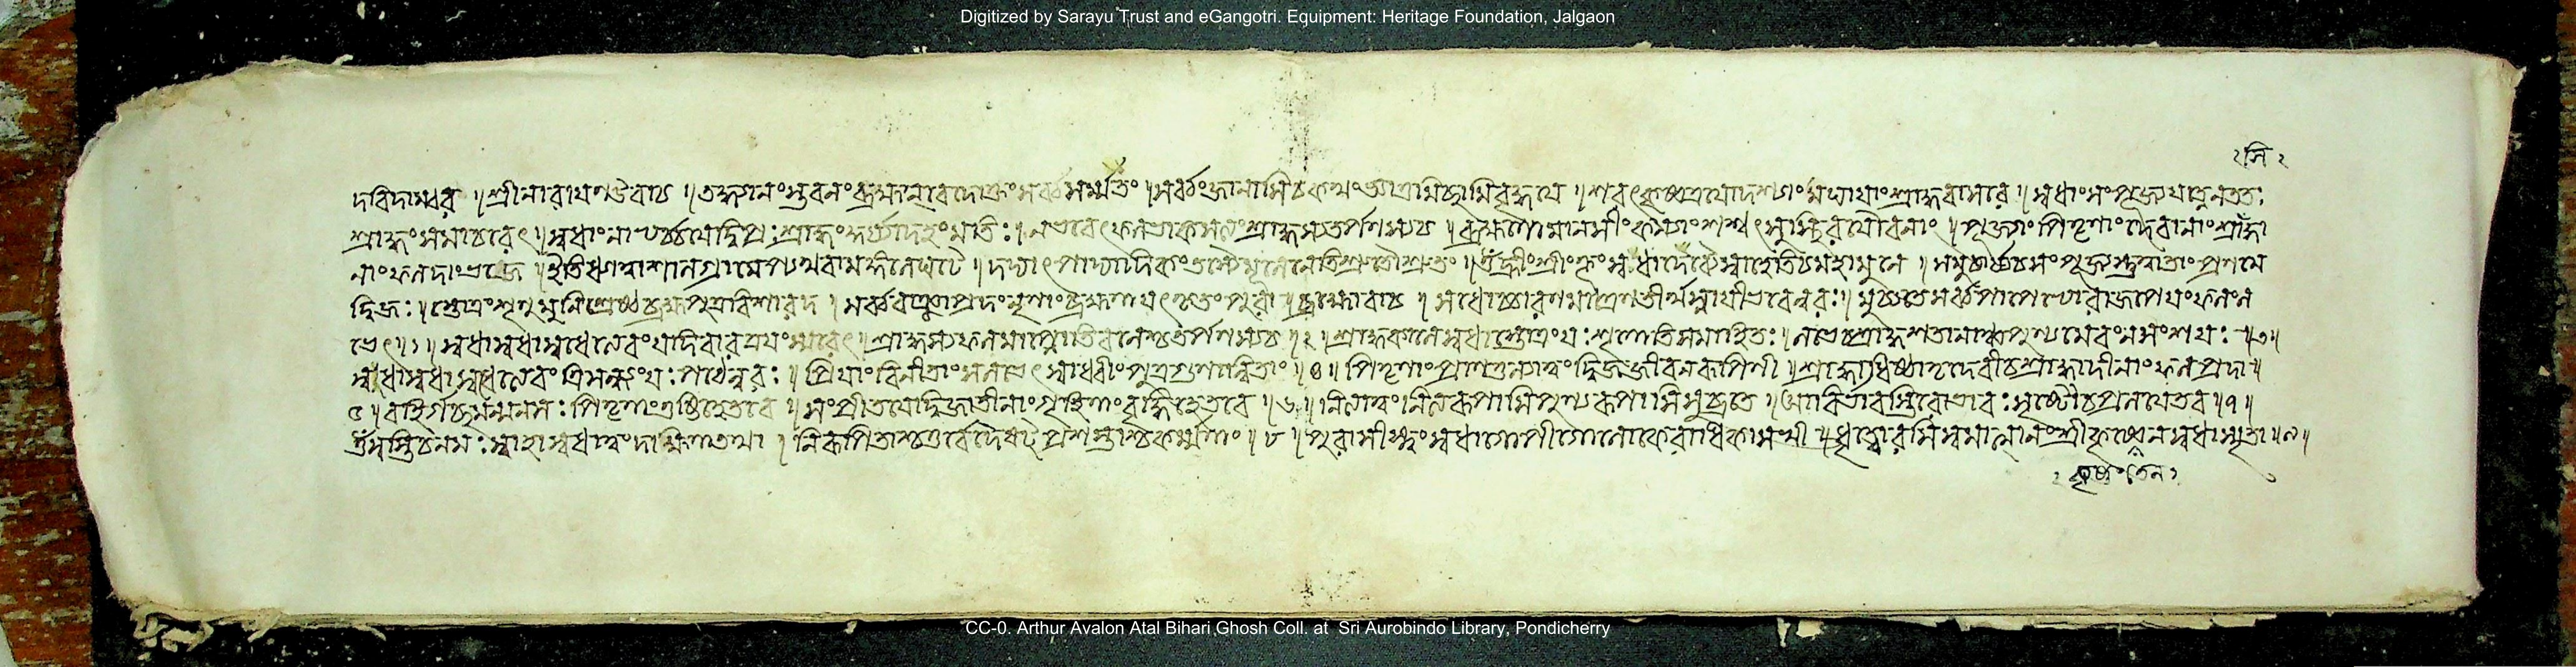 Digitized by Sarayu Trust and eGangotri. Equipment: Heritage Foundation, Jalgaon
সি
দবিদাম্বর ॥ শ্রীনারায়ণউবাচ ॥ তদ্ধ্যানং স্তবনং ব্রহ্মন্ বেদোক্তং সর্ব্বসম্মতং ॥ সর্ব্বং জানাসি চ কথং জ্ঞাতুমিচ্ছসি বৃদ্ধয়ে ॥ শরৎকৃষ্ণত্রয়োদশ্যাং মঘায়াং শ্রাদ্ধবাসরে ॥ স্বধাং সংপূজ্য যত্নেন ততঃ
শ্রাদ্ধং সমাচরেৎ ॥ স্বধাং নাভ্যর্চ্চ্য যোদ্বিপ্রঃ শ্রাদ্ধং কুর্য্যাদহংমতিঃ ॥ ন ভবেৎ ফলভাক্ সত্যং শ্রাদ্ধস্য তর্পণস্য চ ॥ ব্রহ্মণো মানসীং কন্যাং শশ্বৎ সুস্থিরযৌবনাং ॥ পূজ্যাং পিতৃণাং দেবানাং শ্রাদ্ধা
নাং ফলদাং ভজে ॥ ইতি ধ্যাত্বা শালগ্রামেপ্যথবা মঙ্গলে ঘটে ॥ দদ্যাৎ পাদ্যাদিকং তস্যৈ মূলেনেতি শ্রুতৌ শ্রুতং ॥ ওঁ হ্রীং শ্রীং ক্লীং স্বধাদেব্যৈ স্বাহেতি চ মহামুনে ॥ সমুচ্চার্য্য চ সংপূজ্য স্তুত্বা তাং প্রণমে
দ্দ্বিজঃ ॥ স্তোত্রং শৃণু মুনিশ্রেষ্ঠ ব্রহ্মপুত্র বিশারদ ॥ সর্ব্ববাঞ্ছাপ্রদং নৃণাং ব্রহ্মণা যৎকৃতং পুরা ॥ ব্রহ্মোবাচ ॥ স্বধোচ্চারণমাত্রেণ তীর্থস্নায়ী ভবেন্নরঃ ॥ মুচ্যতে সর্ব্বপাপেভ্যো বাজপেয়ফলং ল
ভেৎ ॥ ১ ॥ স্বধা স্বধা স্বধেত্যেবং যদি বারত্রয়ং স্মরেৎ ॥ শ্রাদ্ধস্য ফলমাপ্নোতি বলেশ্চ তর্পণস্য চ ॥ ২ ॥ শ্রাদ্ধকালে স্বধাস্তোত্রং যঃ শৃণোতি সমাহিতঃ ॥ লভেৎ শ্রাদ্ধশতানাঞ্চ পুণ্যমেবং ন সংশয়ঃ ॥ ৩ ॥
স্বধা স্বধা স্বধেত্যেবং ত্রিসন্ধ্যং যঃ পঠেন্নরঃ ॥ প্রিয়াং বিনীতাং স লভেৎ সাধ্বীং পুত্রগুণান্বিতাং ॥ ৪ ॥ পিতৃণাং প্রাণতুল্যাত্বং দ্বিজজীবনরূপিণী ॥ শ্রাদ্ধাধিষ্ঠাতৃদেবী চ শ্রাদ্ধাদীনাং ফলপ্রদা ॥
৫ ॥ বহির্গচ্ছ মন্মনসঃ পিতৃণাং তুষ্টিহেতবে ॥ সংপ্রীতয়ে দ্বিজাতীনাং গৃহিণাং বৃদ্ধিহেতবে ॥ ৬ ॥ নিত্যাত্বং নিত্যরূপাসি পুণ্যরূপাসি সুব্রতে ॥ আবির্ভাবস্তিরোভাবঃ সৃষ্টৌ চ প্রলয়ে তব ॥ ৭ ॥
ওঁ স্বস্তি চ নমঃ স্বাহা স্বধা ত্বং দক্ষিণা তথা ॥ নিরূপিতাশ্চতুর্বেদে ষট্ প্রশস্তাশ্চ কর্ম্মিণাং ॥ ৮ ॥ পুরাসীস্ত্বং স্বধাগোপী গোলোকে রাধিকাসখী ॥ ধৃতোরসি স্বমাত্মানং শ্রীকৃষ্ণেন স্বধা স্মৃতা ॥ ৯ ॥
CC-0. Arthur Avalon Atal Bihari Ghosh Coll. at Sri Aurobindo Library, Pondicherry